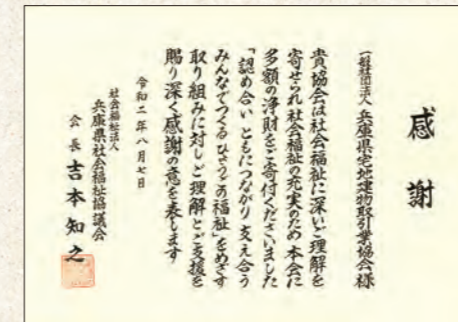 感謝
一般社団法人 兵庫県宅地建物取引業協会様
貴協会は社会福祉に深いご理解を
寄せられ社会福祉の充実のため本会に
多額の浄財をご寄付くださいました
「認め合い ともにつながり 支え合う
みんなでつくるひょうごの福祉」をめざす
取り組みに対しご理解とご支援を
賜り深く感謝の意を表します
令和二年八月七日
社会福祉法人
兵庫県社会福祉協議会
会長 吉本知之